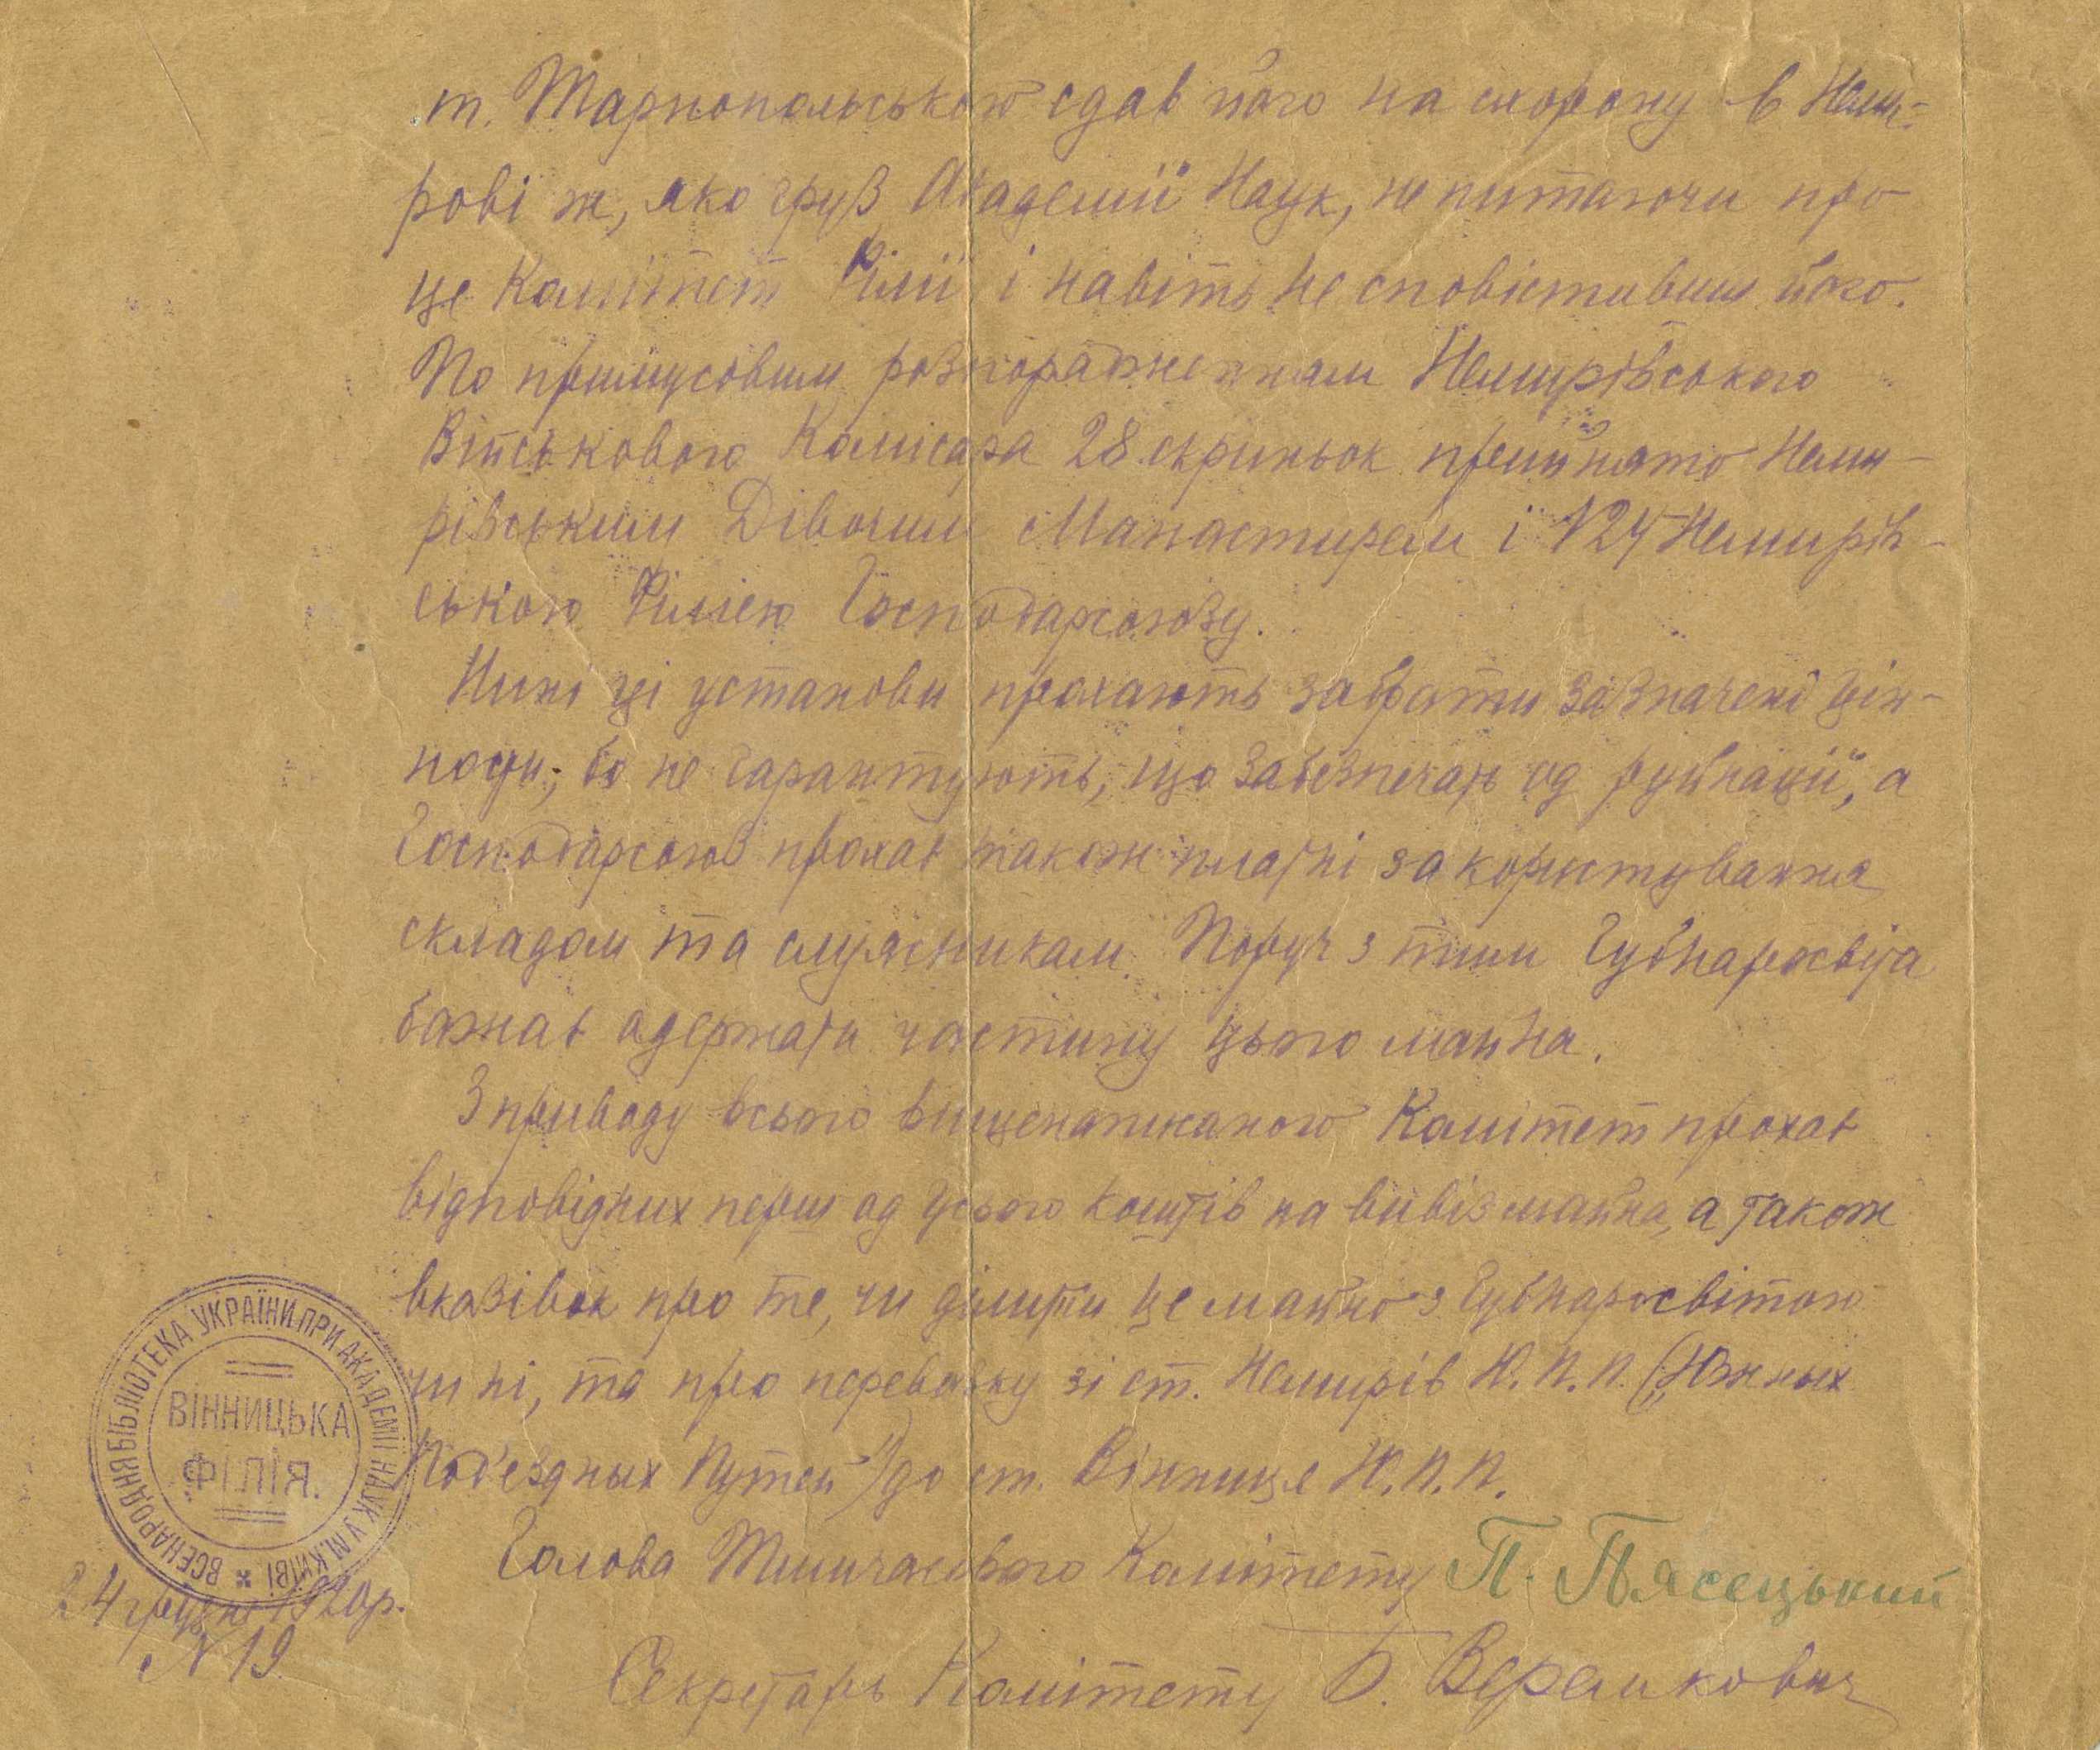 т. Тарнопольською сдав його на схорону в Неми-
рові ж, яко груз Академії Наук, не питаючи про
це Комітет Філії і навіть не сповістивши його.
По примусовим розпорадженням Немирівського
Військового Комісара 28 скриньок прийнято Неми-
рівським Дівочим Манастирем і 124 Немирів-
ською Філією Господарсоюзу.
Нині ці установи прохають забрати зазначені цін-
ности, бо не гарантують, що забезпечать од руйнації, а
Господарсоюз прохає також платні за користування
складом та служникам. Поруч з тим Губнаросвіта
бажає одержати частину цього майна.
З приводу всього вищенаписаного Комітет прохає
відповідних перш од усього коштів на вивіз майна, а також
вказівок про те, чи ділити це майно з Губнаросвітою
чи ні, та про перевозку зі ст. Немирів Ю.П.П. („Южных
Под'ездных Путей") до ст. Вінниця Ю.П.П.
Голова Тимчасового Комітету П. Пясецький
Секретарь Комітету Б.
ВСЕНАРОДНЯ БІБЛІОТЕКА УКРАЇНИ ПРИ АКАДЕМІЇ НАУК У М. КИЇВІ
ВІННИЦЬКА
ФІЛІЯ.
24 грудня 1920 р.
№ 19